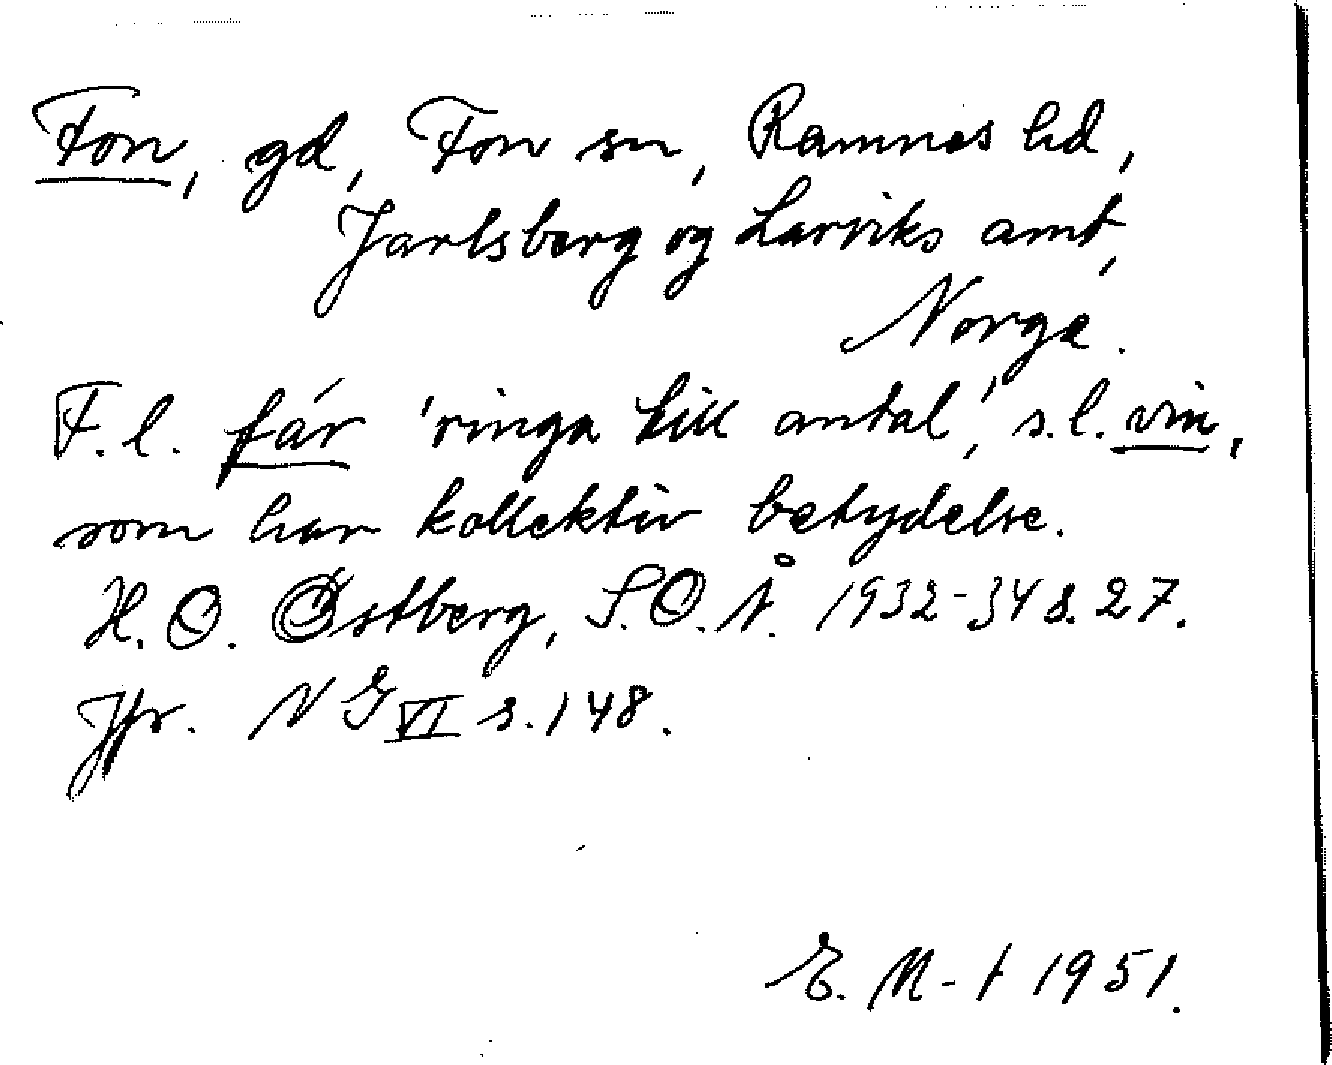 Fon, gd, Fon sn, Ramnes hd,
Jarlsberg og Larviks amt,
Norge.
F.l. fár 'ringa till antal', s.l. vin,
som har kollektiv betydelse.
H. O. Østberg, S.O.Å. 1932-34 s. 27.
Jfr. NG VI s. 148.
E. M-t 1951.